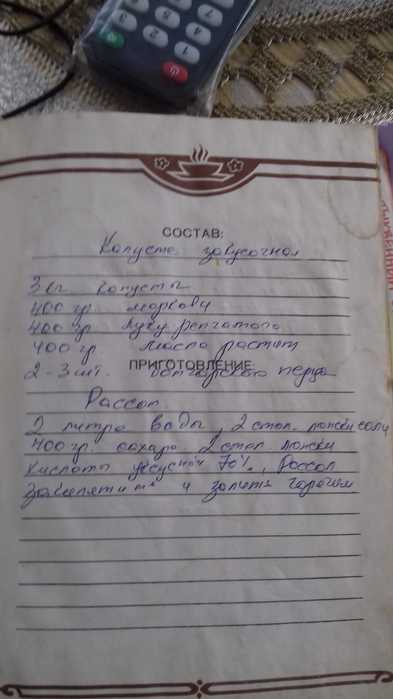 СОСТАВ:
Капуста закусочная
3 кг капусты
400 гр моркови
400 гр луку репчатого
400 гр масло растит
ПРИГОТОВЛЕНИЕ:
2-3 шт. болгарского перца
Рассол
2 литра воды, 2 стол. ложки соли
400 гр. сахара 2 стол ложки
кислоты уксусной 70%, Рассол
закипятить и залить горячим